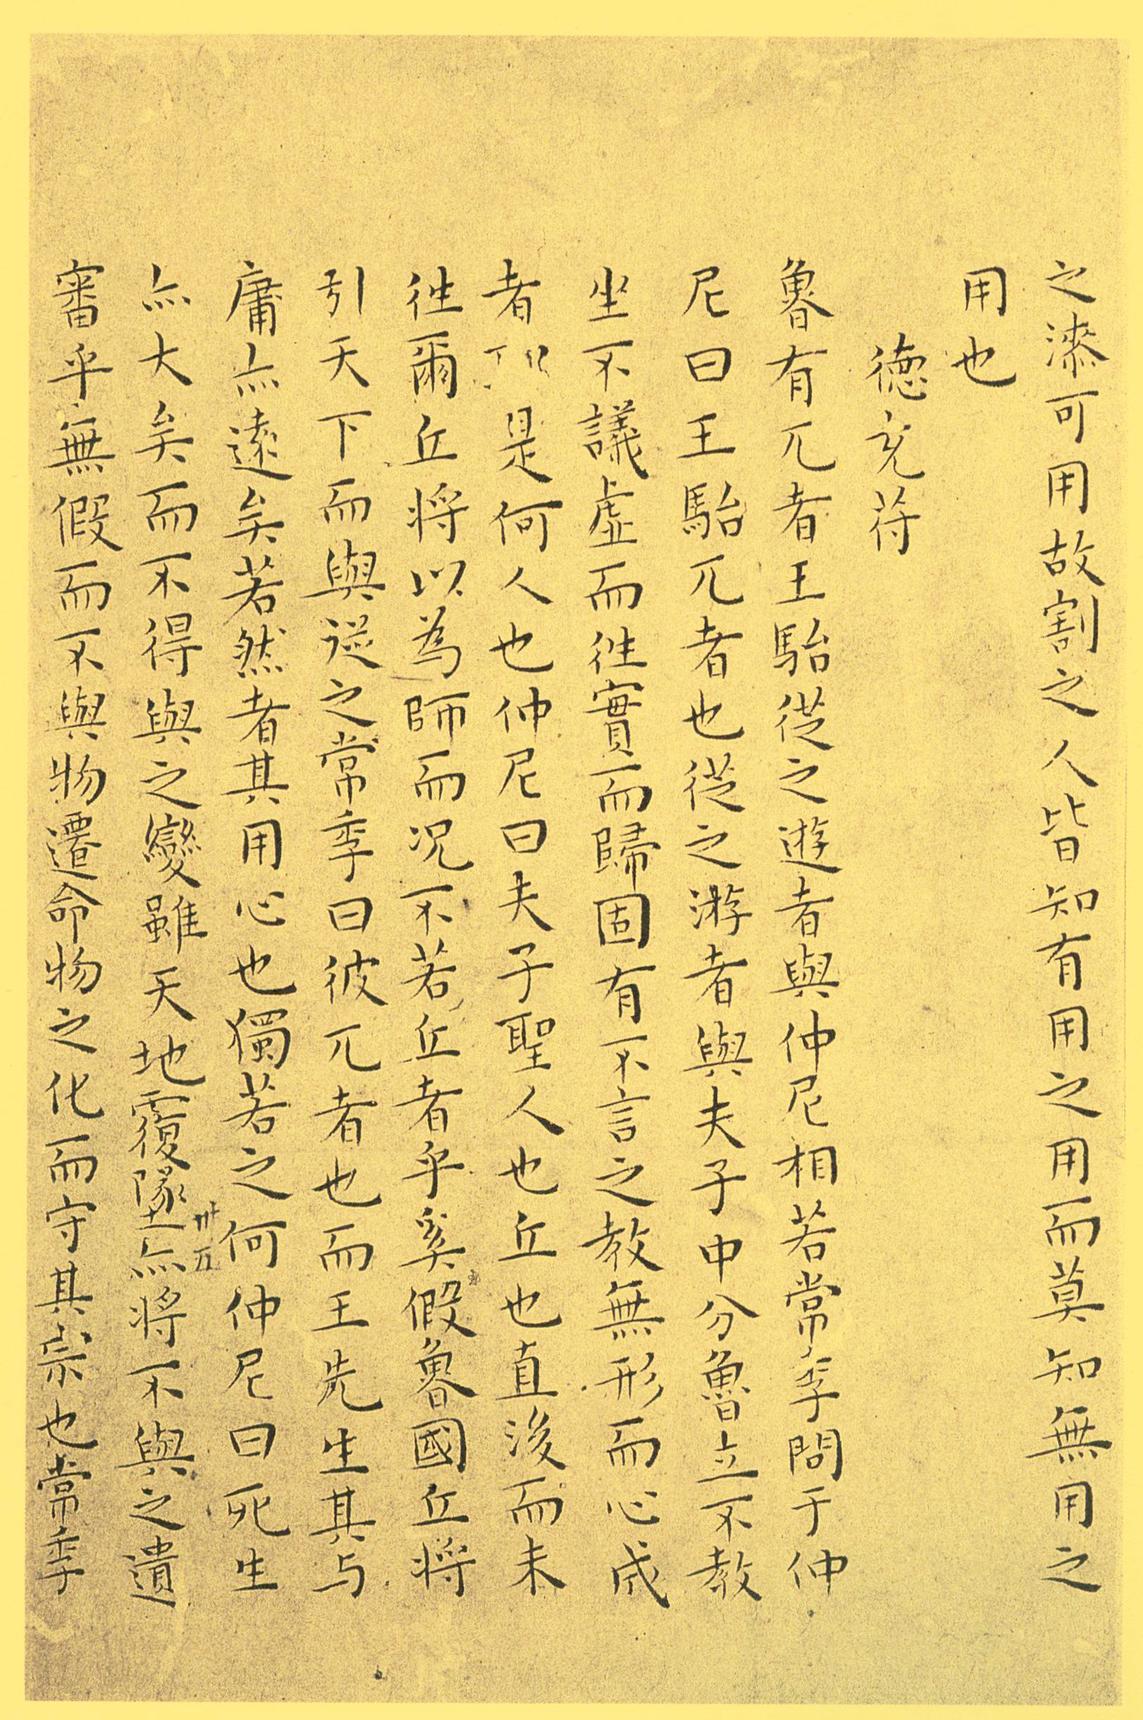 之漆可用故割之人皆知有用之用而莫知無用之
用也
德充符
魯有兀者王駘從之遊者與仲尼相若常季問于仲
尼曰王駘兀者也從之游者與夫子中分魯立不教
坐不議虛而往實而歸固有不言之教無形而心成
者是何人也仲尼曰夫子聖人也丘也直後而未
往爾丘將以為師而况不若丘者乎奚假魯國丘將
引天下而與從之常季曰彼兀者也而王先生其与
庸亦遠矣若然者其用心也獨若之何仲尼曰死生
亦大矣而不得與之變雖天地覆墜亦將不與之遺
卅五
審乎無假而不與物遷命物之化而守其宗也常季